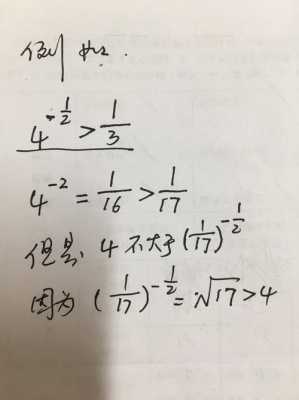 例如.
4^{-\frac{1}{2}} > \frac{1}{3}
4^{-2} = \frac{1}{16} > \frac{1}{17}
但是, 4不大于(\frac{1}{17})^{-\frac{1}{2}}
因为 (\frac{1}{17})^{-\frac{1}{2}} = \sqrt{17} > 4